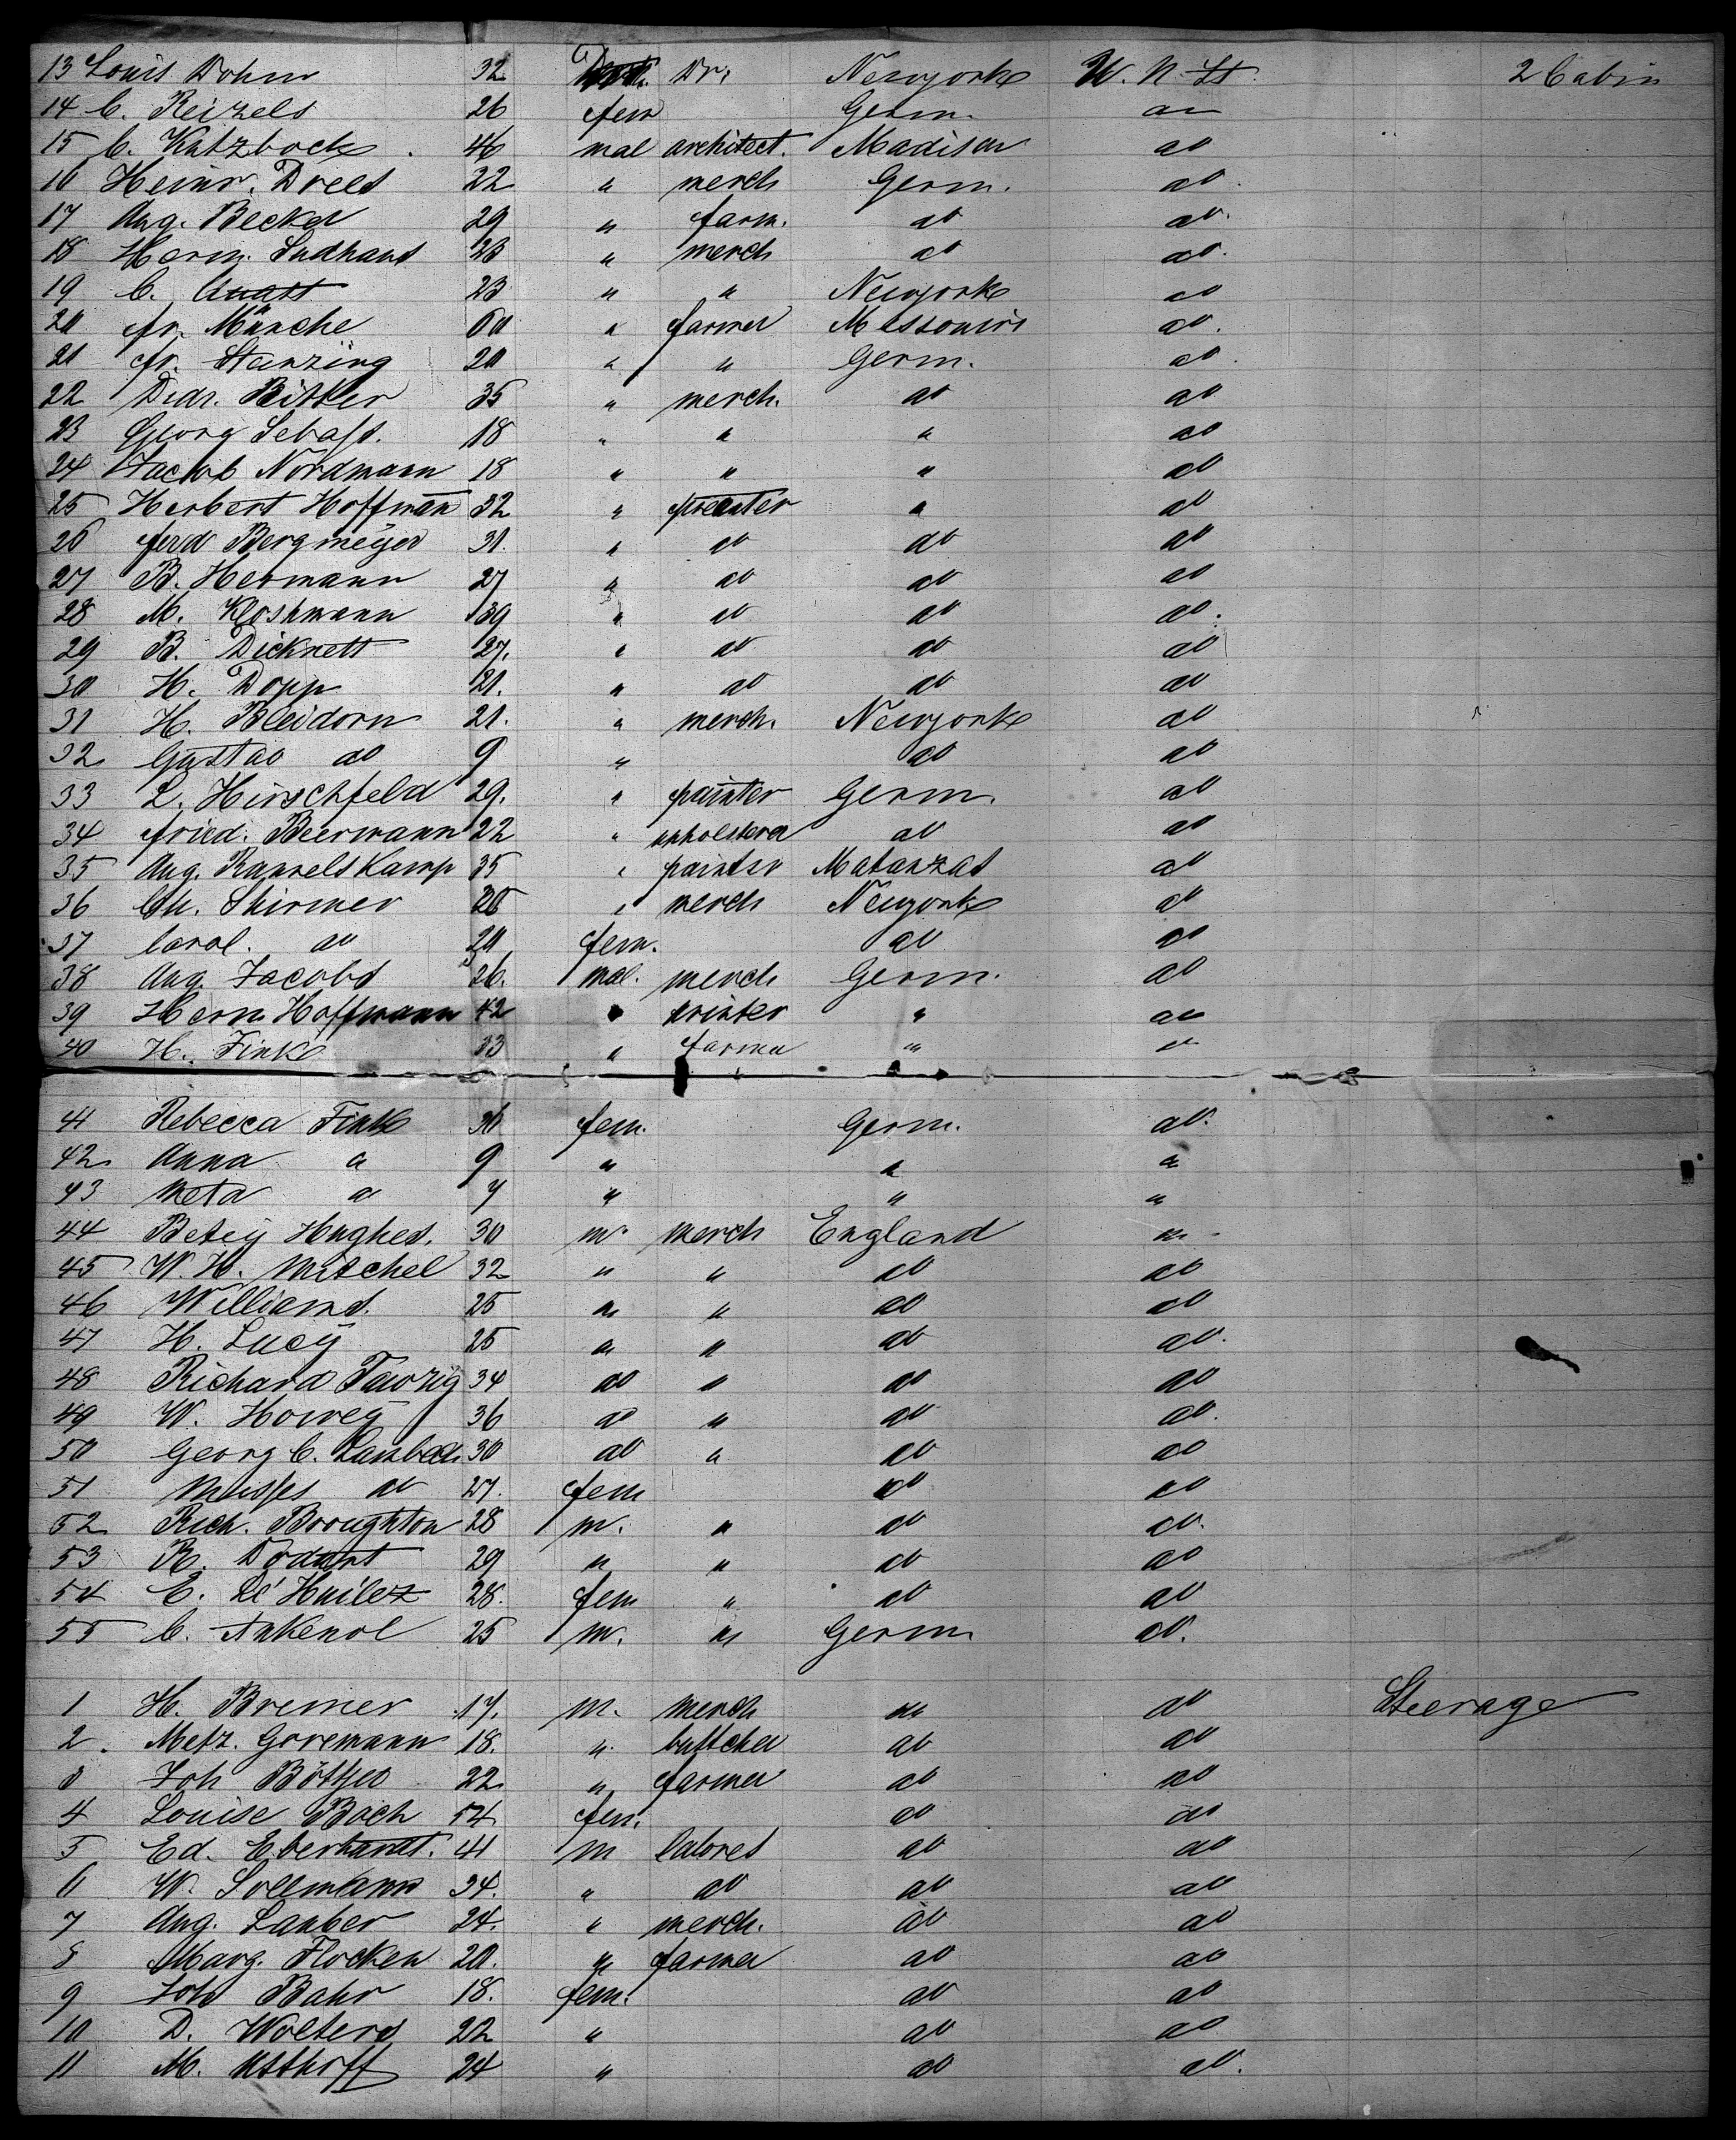 13 Louis Dohm 32 Dr. Newyork U. N. St. 2 Cabin
14 C. Reizels 26 fem Germ. do
15 C. Katzbock 46 mal architect. Madison do
16 Heinr. Drees 22 " merch Germ. do
17 Aug. Becker 29 " farm. do do
18 Herm. Sudhaus 23 " merch do do
19 C. Quast 23 " " Newyork do
20 fr. Münche 60 " farmer Messouri do
21 fr. Stanzing 20 " " Germ. do
22 Didr. Bitter 35 " merch. do do
23 Georg Sebast. 18 " " " do
24 Jacob Nordmann 18 " " " do
25 Herbert Hoffman 32 " " do
26 ferd Bergmeyer 31. " do do do
27 B. Hermann 27 " do do do
28 M. Kloshmann 39 " do do do
29 B. Dicknett 27. " do do do
30 H. Dopp 21. " do do do
31 H. Bleidorn 21. " merch. Newyork do
32 Gustav do 9 " do do
33 L. Hirschfeld 29. " painter Germ. do
34 fried. Beermann 22 " upholsterer do do
35 Aug. Rannelskamp 35 " painter Matanzas do
36 Ch. Shirmer 26 " merch Newyork do
37 Carol. do 20 fem. do do
38 Aug. Jacobs 26. mal. merch Germ. do
39 Herm Hoffmann 42 " printer " do
40 H. Fink 33 " farmer " do
41 Rebecca Fink 36 fem. Germ. do
42 Anna " 9 " " "
43 Meta " 7 " " "
44 Betey Hughes. 30 m. merch England "
45 W. H. Mitchel 32 " " do do
46 Williams. 25 " " do do
47 H. Lucy 25 " " do do
48 Richard 34 do " do do
49 W. Howey 36 do " do do
50 Georg C. 30 do " do do
51 Misses do 27. fem do do
52 Rich. Boroughton 28 m. " do do
53 R. Dodart 29 " " do do
54 E. Le' Huilez 28. fem " do do
55 C. Ankenol 25 m. " Germ do.
1 H. Bremer 17. m. merch " do Steerage
2. Metz. Goremann 18. " buttcher do do
3 Joh Böttjer 22 " farmer do do
4 Louise Boch 54 fem. do do
5 Ed. Eberhardt. 41 m labores do do
6 W. Sollmann 34. " do do do
7 Aug. Lauber 24. " merch. do do
8 Marg. Flocken 20. " farmer do do
9 Joh Bahr 18. fem. do do
10 D. Wolters 22 " do do
11 M. Usthoff 24 " do do.